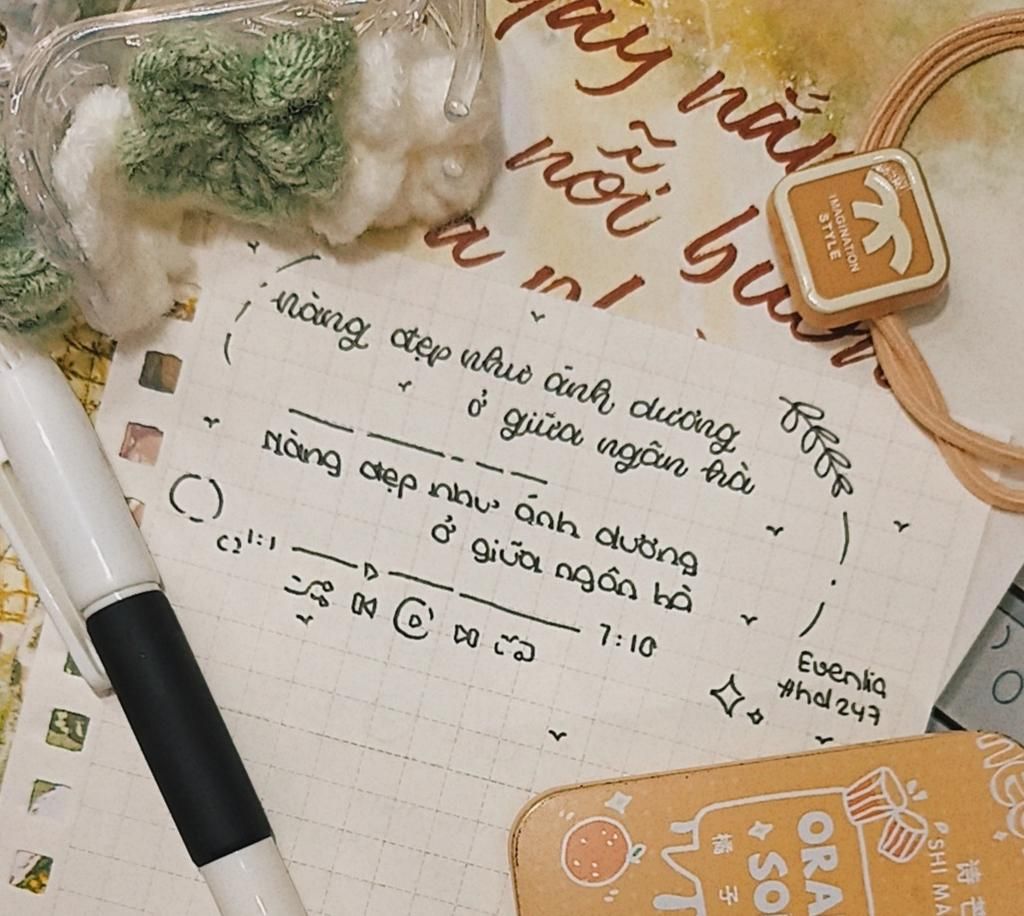 nắn
nỗi buồn
IMAGINATION
STYLE
nàng đẹp như ánh dương
ở giữa ngân hà
Nàng đẹp như ánh dương
ở giữa ngân hà
C2 1:1
7:10
Evenlia
#hd247
ORA
SO
橘
子
SHI MA
诗